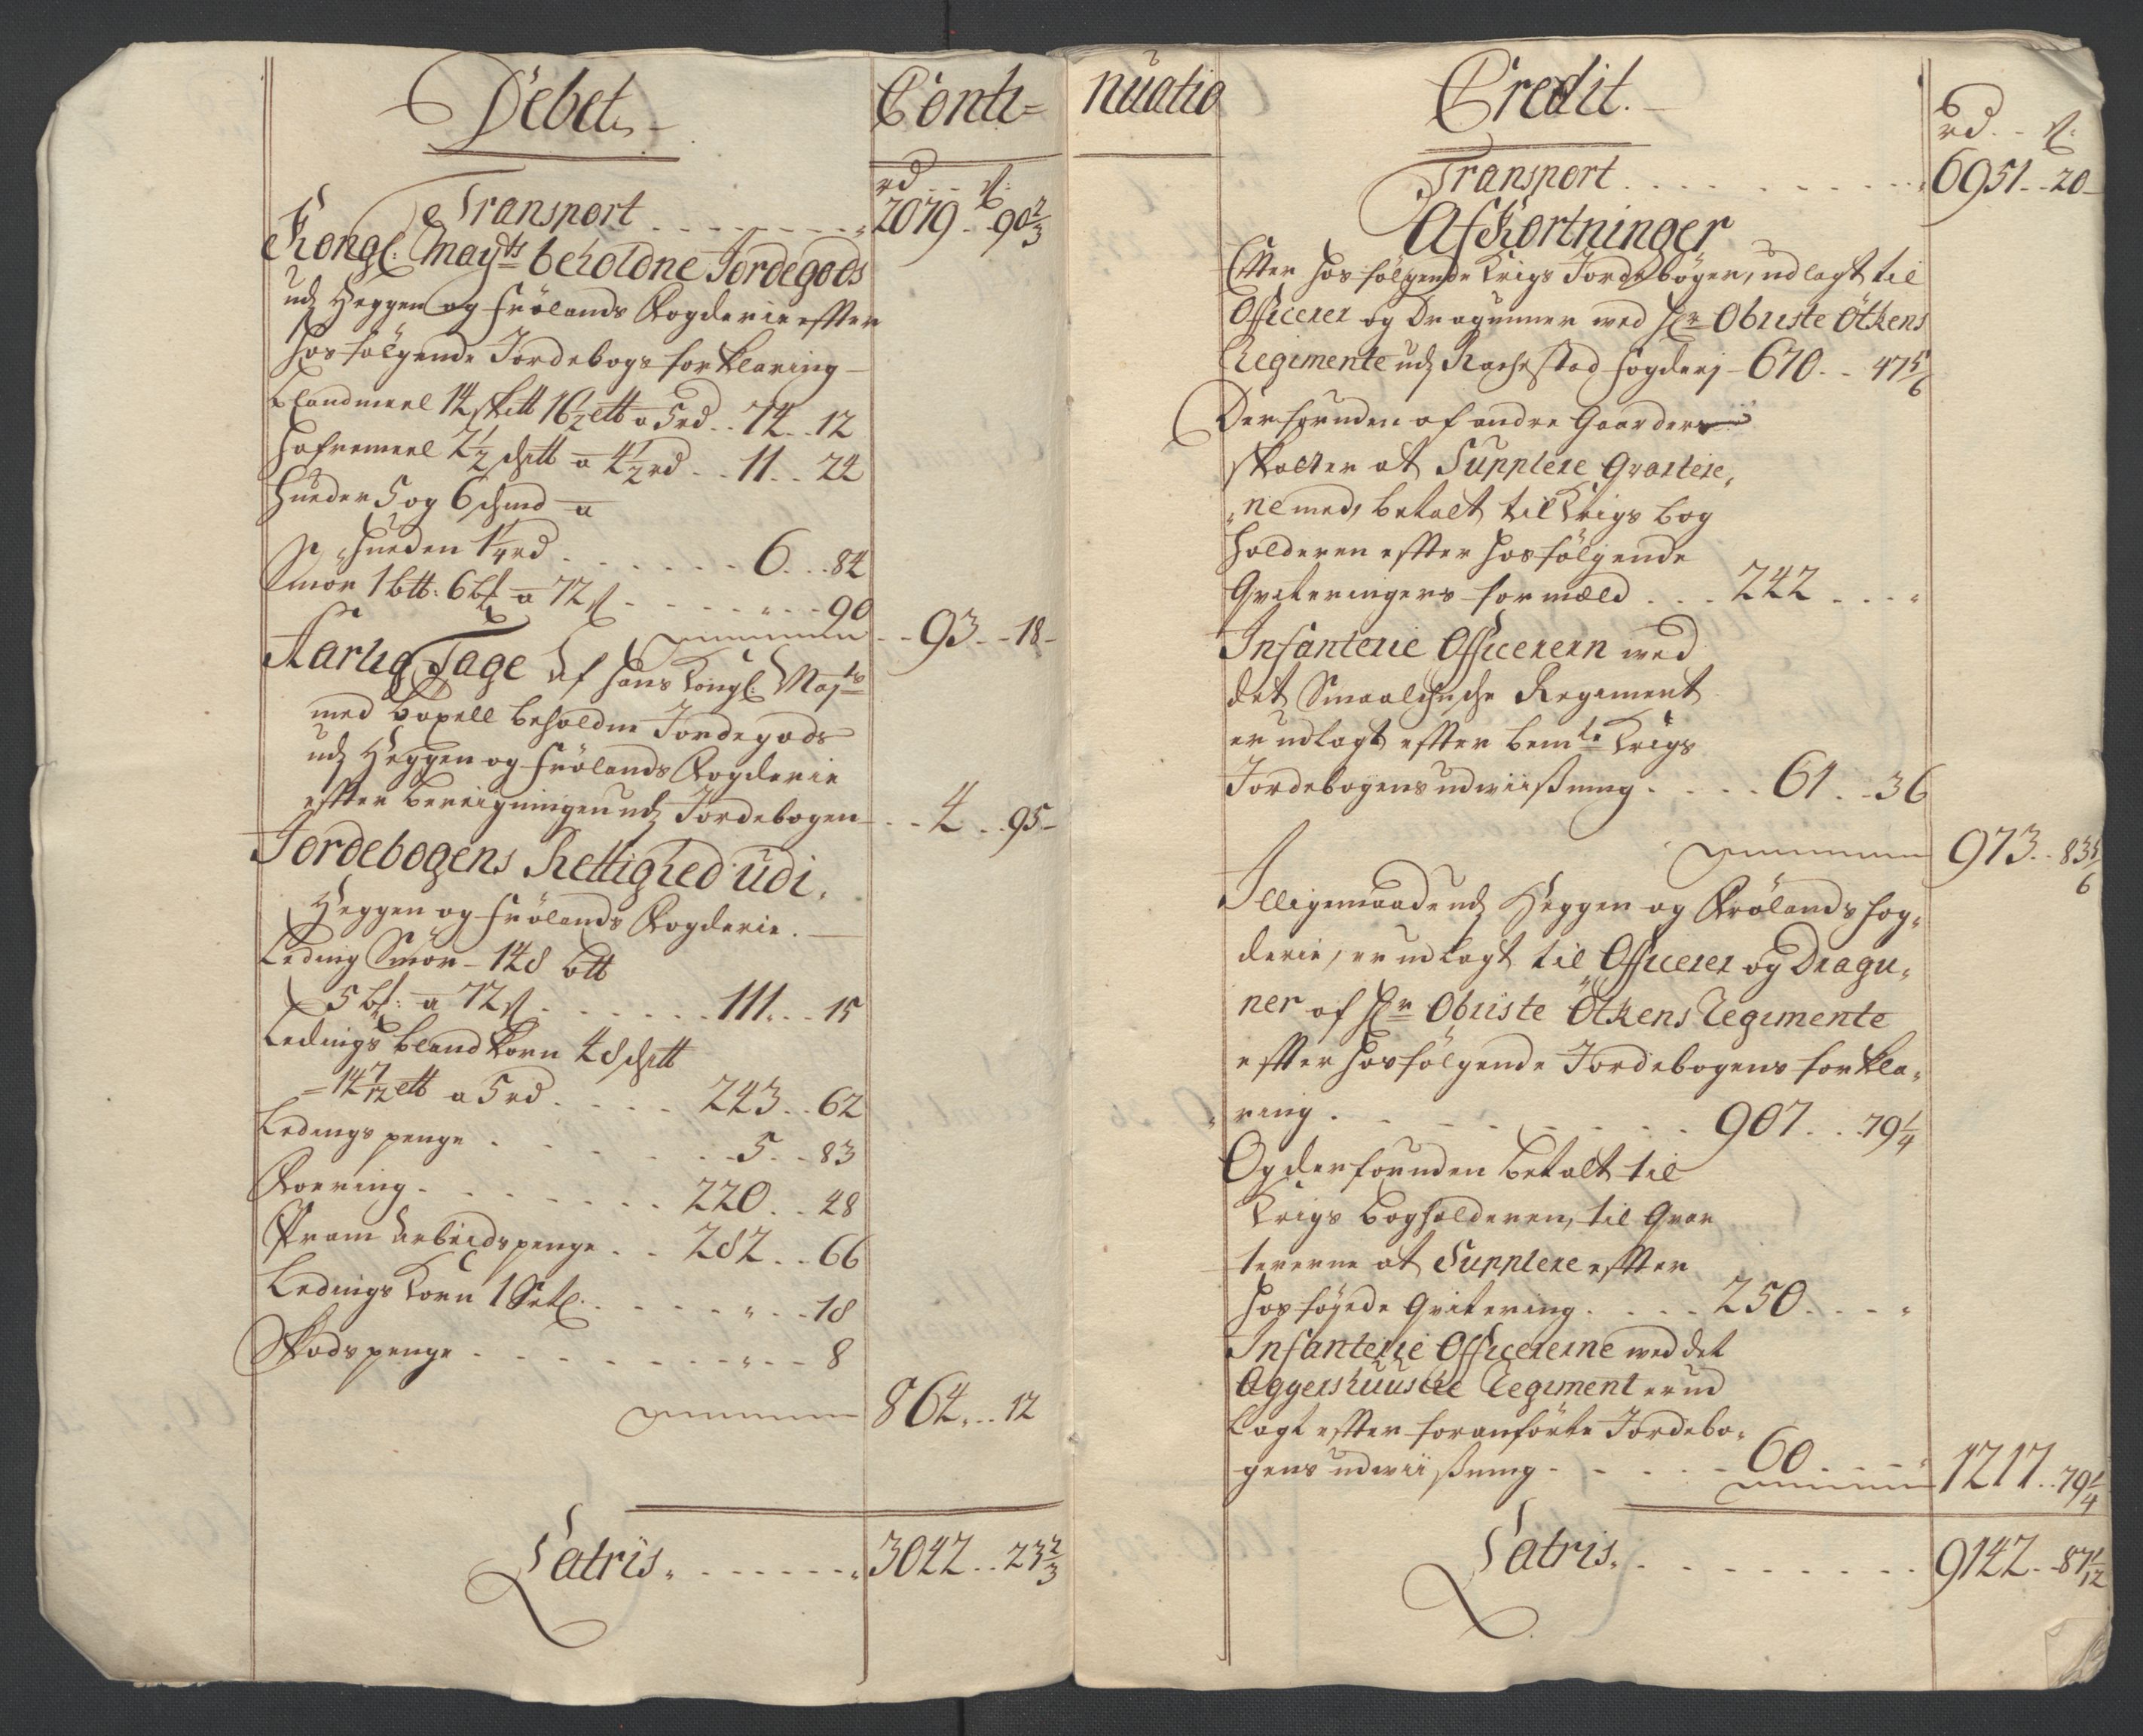 Debet
Conti=
rd ß:
Transport 2079 90 2/3
Kongl: Mayts beholdne Jordegods
udj Heggen og Frölands Fogderie effter
hosfölgende Jordebogs forklaring
Blandmeel 14 skitt 16 1/2 ett a 5 rd 74 12
Hafremeel 2 1/2 schitt a 4 1/2 rd 11 24
Hueder 5 og 6 schind a
huden 1 1/4 rd 6 84
Smör 1 btt: 6 bl a 72 ß 90
93 18
Aarlig Tage Af Hans Kongl: Mayts
med böxell beholdne Jordegods
udj Heggen og Frölands Fogderie
effter bereigningen udj Jordebogen 4 95
Jordebogens Rettighed udi
Heggen og Frölands Fogderie.
Leding Smör 148 btt
5 bl: a 72 ß 111 15
Ledings bland korn 48 schitt
14 7/12 ett a 5 rd 243 62
Ledings penge 5 83
Foering 220 48
Fram Arbeids penge 282 66
Ledings Korn 1 Setl. 18
Skads penge 8
864 12
Latris 3042 23 2/3
nuatio
Credit.
rd ß:
Transport 6951 20
Afkortninger
Effter hosfölgende Krigs Jordebøger, udlagt til
Officerer og Dragunner wed Hr Obriste Ötkens
Regimente udj Rachestad fogderj 670 47 5/6
Derforuden af andre Gaarders
skatter at Supplere Qvartere,
ne med, betalt til Krigs bog
holderen effter hosfölgende
Qviteringers formæld 242
Infanterie Officerern wed
det Smaalehnske Regiment
er udlagt effter bemte Krigs
Jordebogens udwiisning 61 36
973 83 5/6
Iligemaade udj Heggen og Frölands fog,
derie, er udlagt til Officerer og Dragu,
ner af Hr Obriste Ötkens Regimente
effter hosfölgende Jordebogens forkla,
ring 907 79 1/4
Og derforuden betalt til
Krigs bogholderen, til Qvar
tererne at Supplere effter
hosföyede Qvitering 250
Infanterie Officererne wed det
Aggershuusche Regiment er ud
lagt effter foranförte Jordebo,
gens udwiisning 60
1217 79 1/4
Latris 9142 87 1/12